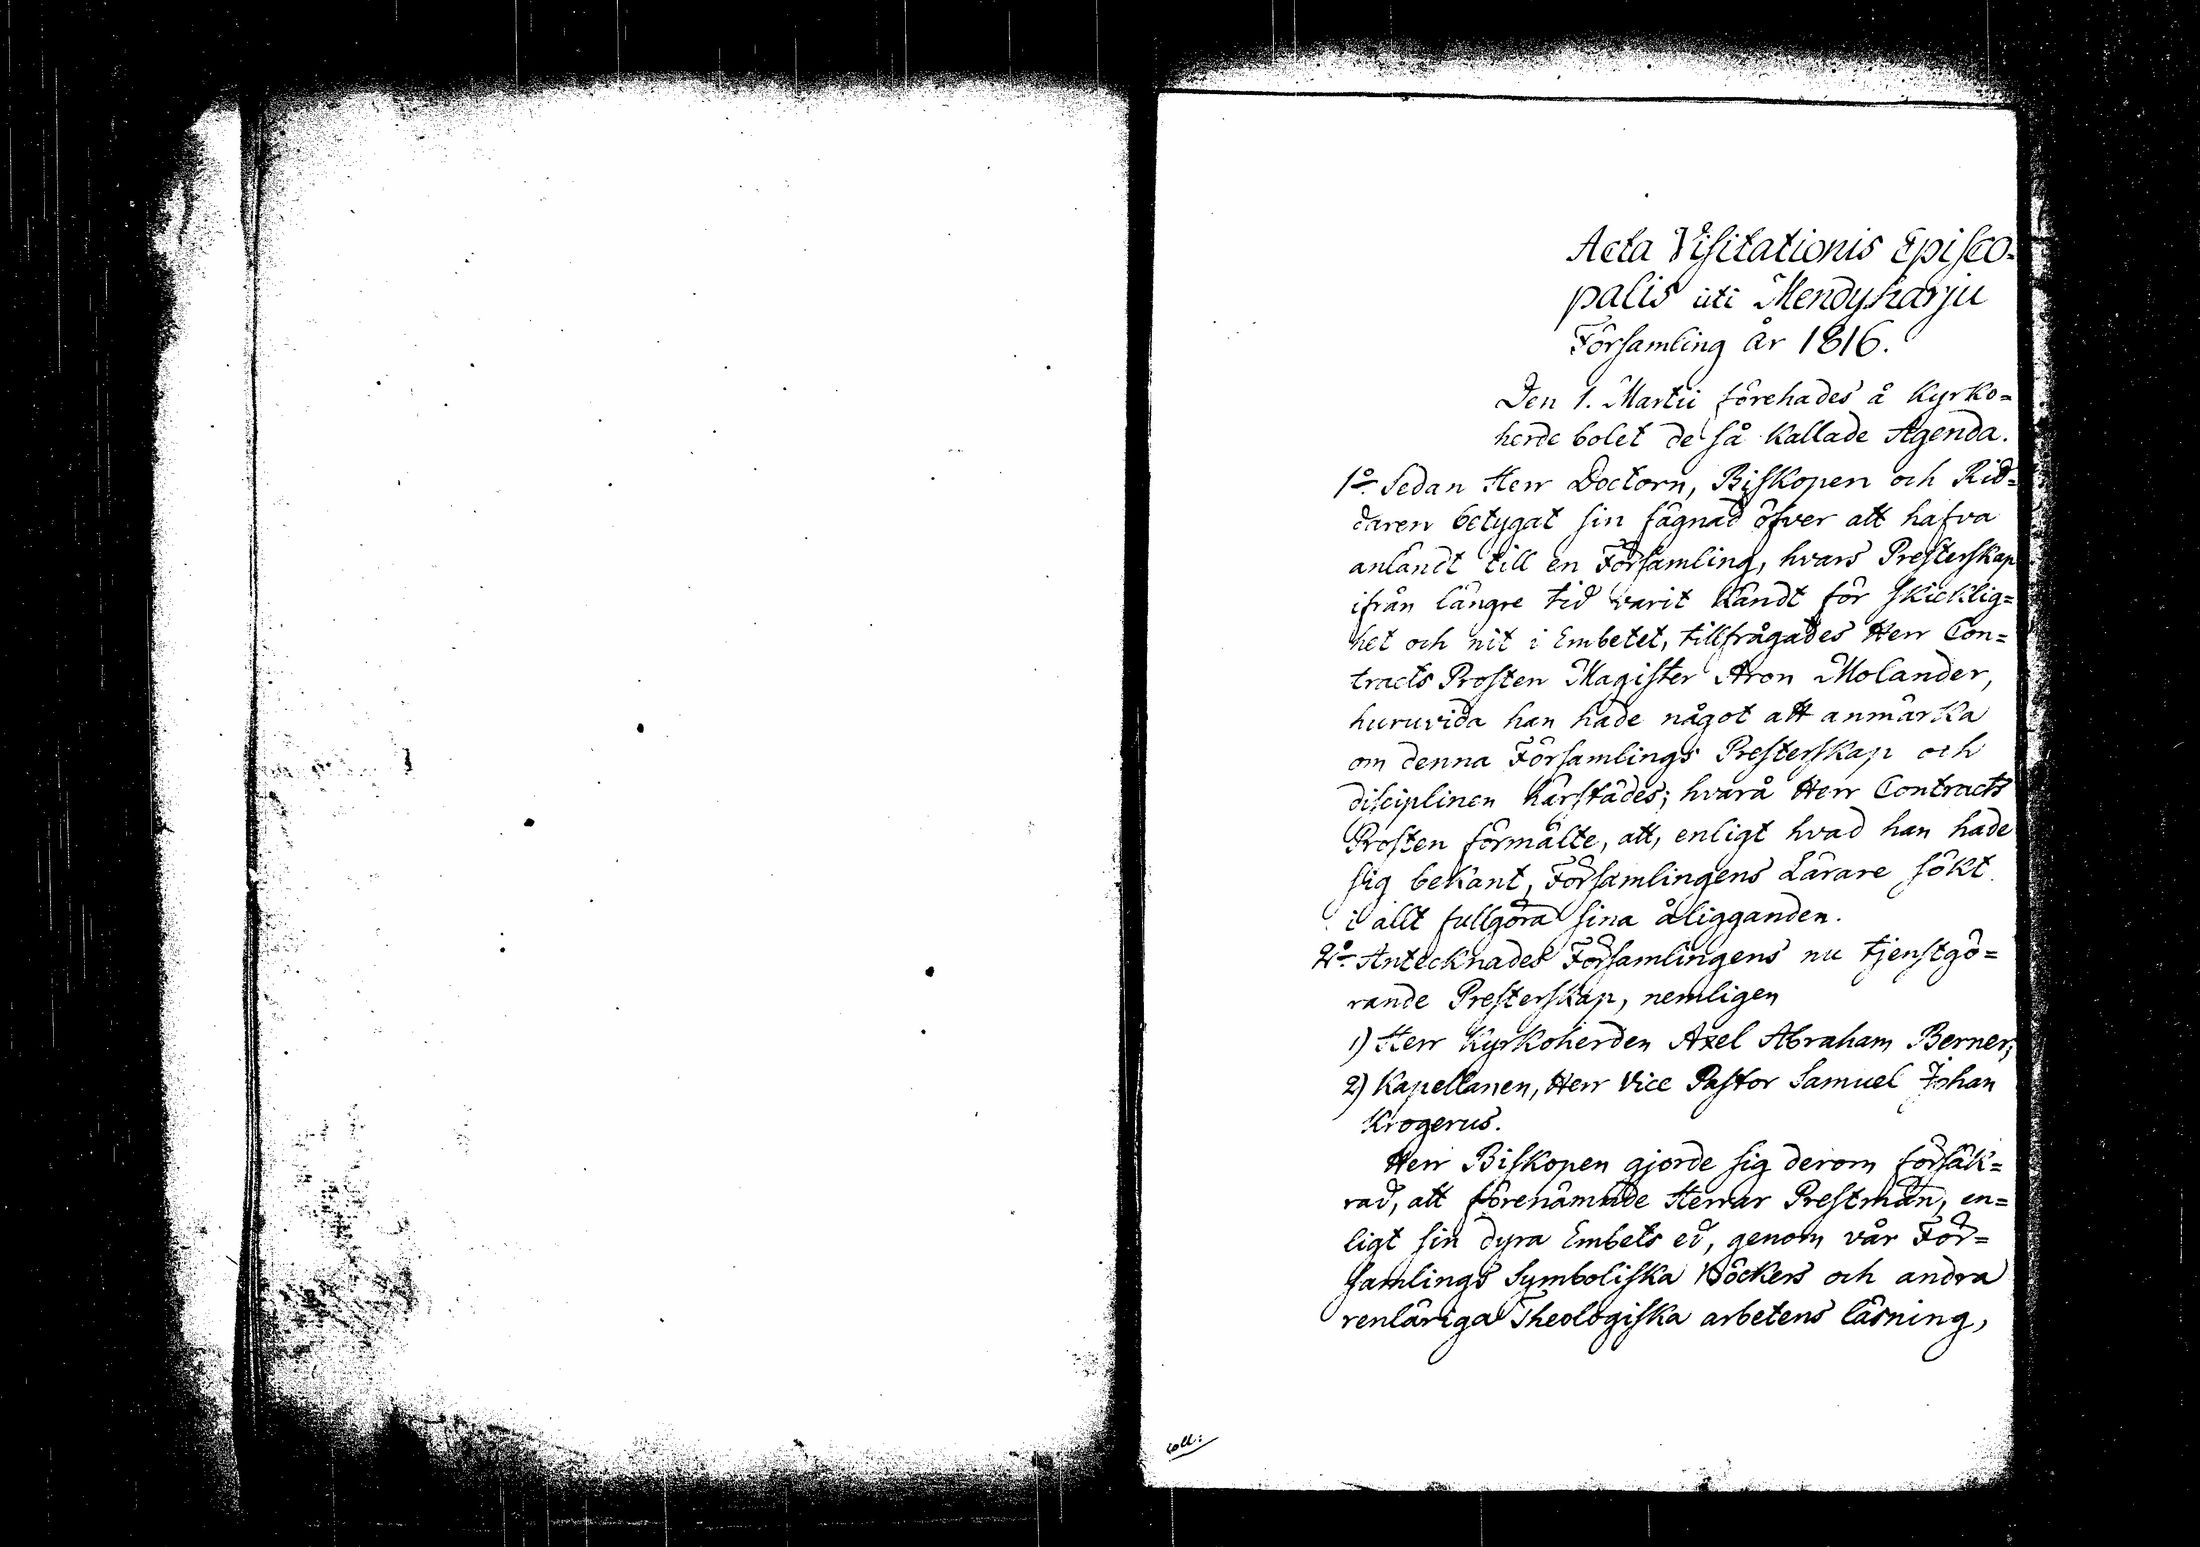 Acta Visitationis Episco-
palis uti Mendyharju
Församling År 1816.
Den 1. Martii förehades å Kyrko-
herde bolet de så kallade Agenda.
1o. Sedan Herr Doctorn, Biskopen och Rid-
daren betygat sin fägnad öfver att hafva
anländt till en Församling, hvars Presterskap
ifrån längre tid varit kändt för skicklig-
het och nit i Embetet, tillfrågades Herr Con-
tracts Prosten Magister Aron Molander,
huruvida han hade något att anmärka
om denna Församlings Presterskap och
disciplinen härstädes; hvarå Herr Contracts
Prosten förmälte, att, enligt hvad han hade
sig bekant, Församlingens Lärare sökt
i allt fullgöra sina åligganden.
2o. Antecknades Församlingens nu tjenstgö-
rande Presterskap, nemligen
1) Herr Kyrkoherden Axel Abraham Berner,
2) Kapellanen, Herr Vice Pastor Samuel Johan
Krogerus.
Herr Biskopen gjorde sig derom försäk-
rad, att förenämnde Herrar Prestmän, en-
ligt sin dyra Embets ed, genom vår För-
samlings Symboliska Böckers och andra
renläriga Theologiska arbetens läsning,
coll: